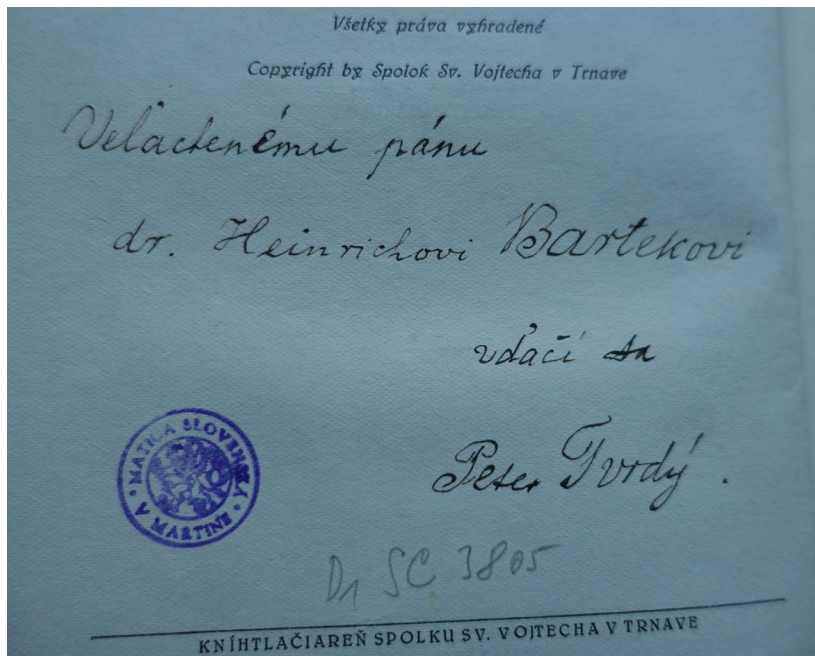 Všetky práva vyhradené
Copyright by Spolok Sv. Vojtecha v Trnave
Veľactenému pánu
dr. Heinrichovi Bartekovi
vďačí sa
Peter Tvrdý.
MATICA SLOVENSKÁ
V MARTINE
D1 SC 3805
KNÍHTLAČIAREŇ SPOLKU SV. VOJTECHA V TRNAVE